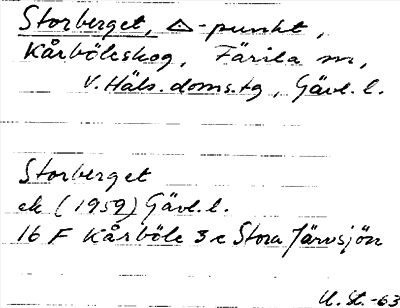 Storberget, △-punkt,
Kårböleskog, Färila sn,
V. Häls. doms.tg, Gävl. l.
Storberget
ek (1959) Gävl. l.
16 F Kårböle 3 c Stora Järvsjön
U. St. -63